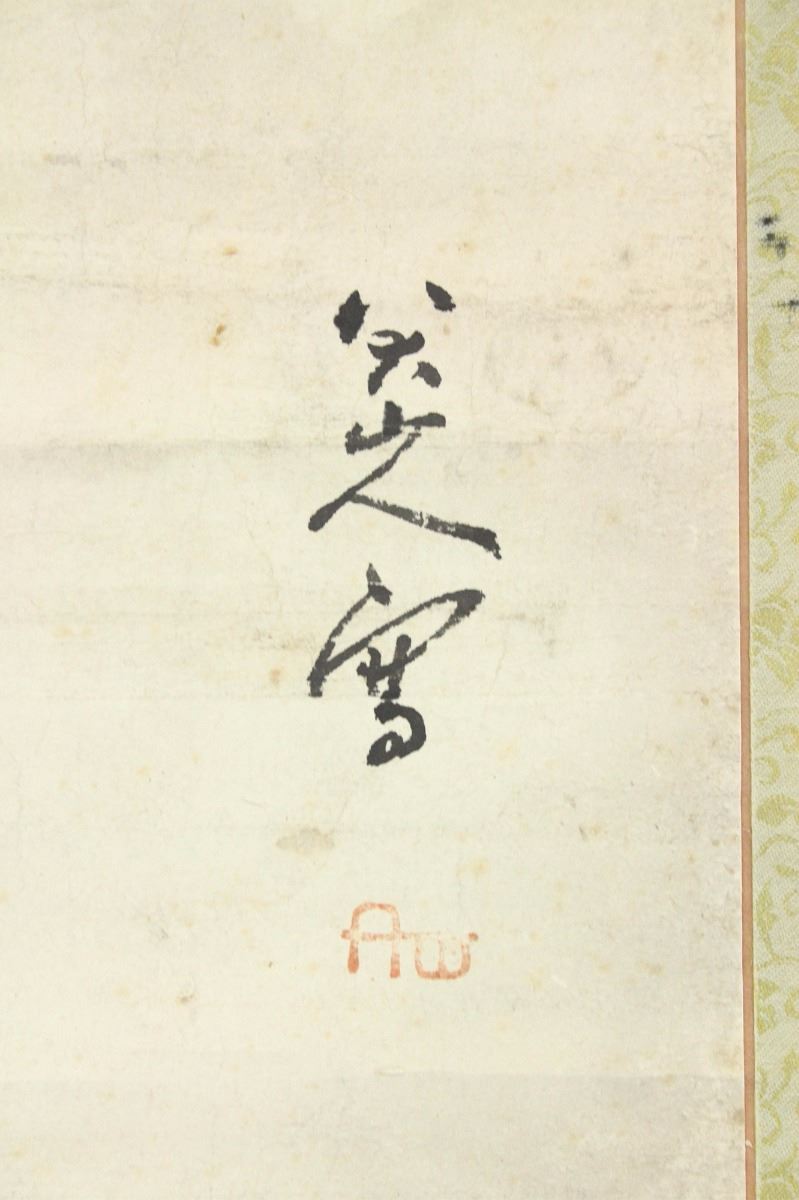 八大山人寫